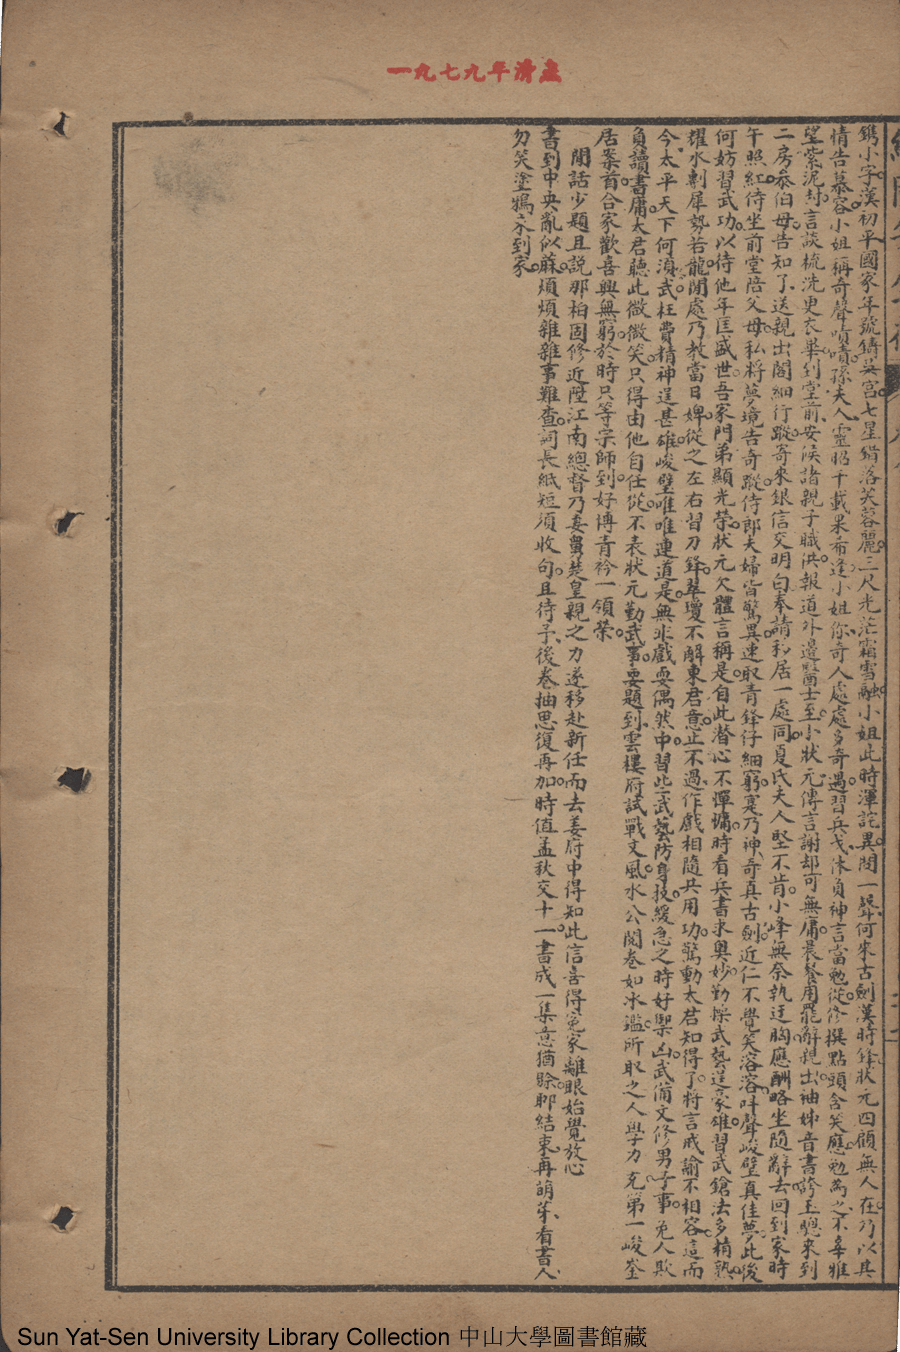 一九七九年清点
鐫小字漢初平國家年號鑄吳宮七星錯落芙蓉麗三尺光茫霜雪融小姐此時渾詫異問一聲何來古劍漢時鋒狀元四顧無人在乃以其
情告慕容小姐稱奇聲嘖嘖孫夫人靈昭千載果希逢小姐你奇人處處多奇遇習兵戈休負神言當勉從修撰點頭含笑應勉為之不辜雅
望紫泥封言談梳洗更衣畢到堂前安候諸親子職供報道外邊醫士至小狀元傳言謝却可無庸晨餐用罷辭親出袖姊音書誇玉驄來到
二房叅伯母告知了送親出閣細行蹤寄來銀信交明白奉請移居一處同夏氏夫人堅不肯小峰無奈執迂胸應酬略坐隨辭去回到家時
午照紅侍坐前堂陪父母私將夢境告奇蹤侍郎夫婦皆驚異速取青鋒仔細窮寔乃神奇真古劍近仁不覺笑溶溶呌聲峻璧真佳夢此後
何妨習武功以待他年匡盛世吾家門弟顯光榮狀元欠體言稱是自此潛心不憚慵時看兵書求奧妙勤操武藝逞豪雄習武鎗法多精熟
耀水剸犀勢若龍閒處乃教當日婢從之左右習刀鋒翠瓊不解東君意止不過作戲相隨共用功驚動太君知得了將言戒諭不相容這而
今太平天下何湏武枉費精神逞甚雄峻璧唯唯連道是無非戲耍偶然中習此武藝防身技緩急之時好禦凶武俻文修男子事免人欺
負讀書庸太君聽此微微笑只得由他自任從不表狀元勤武事要題到雲樓府試戰文風水公閱卷如冰鑑所取之人學力克第一峻峑
居案首合家歡喜興無窮於時只等宗師到好博青衿一領榮
閒話少題且說那柏固修近陞江南總督乃妾舅楚皇親之力遂移赴新任而去姜府中得知此信喜得冤家離眼始覺放心
書到中央亂似蔴煩煩雜雜事難查詞長紙短須收句且待予後卷抽思復再加時值孟秋交十一書成一集意猶賒聊結束再萌芽看書人
勿笑塗鴉未到家
Sun Yat-Sen University Library Collection 中山大學圖書館藏